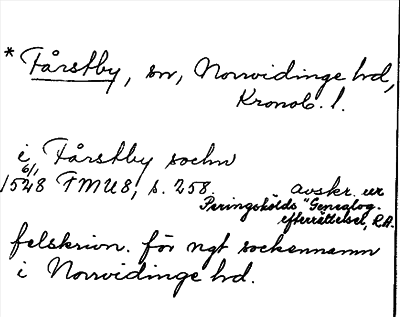 * Fårstby, sn, Norrvidinge hd,
Kronob. l.
i Fårstby sochn
6/1
1548 FMU8, s. 258. avskr. ur
Peringskölds "Genealog.
efterrättelser, RA.
felskrivn. för ngt sockennamn
i Norrvidinge hd.